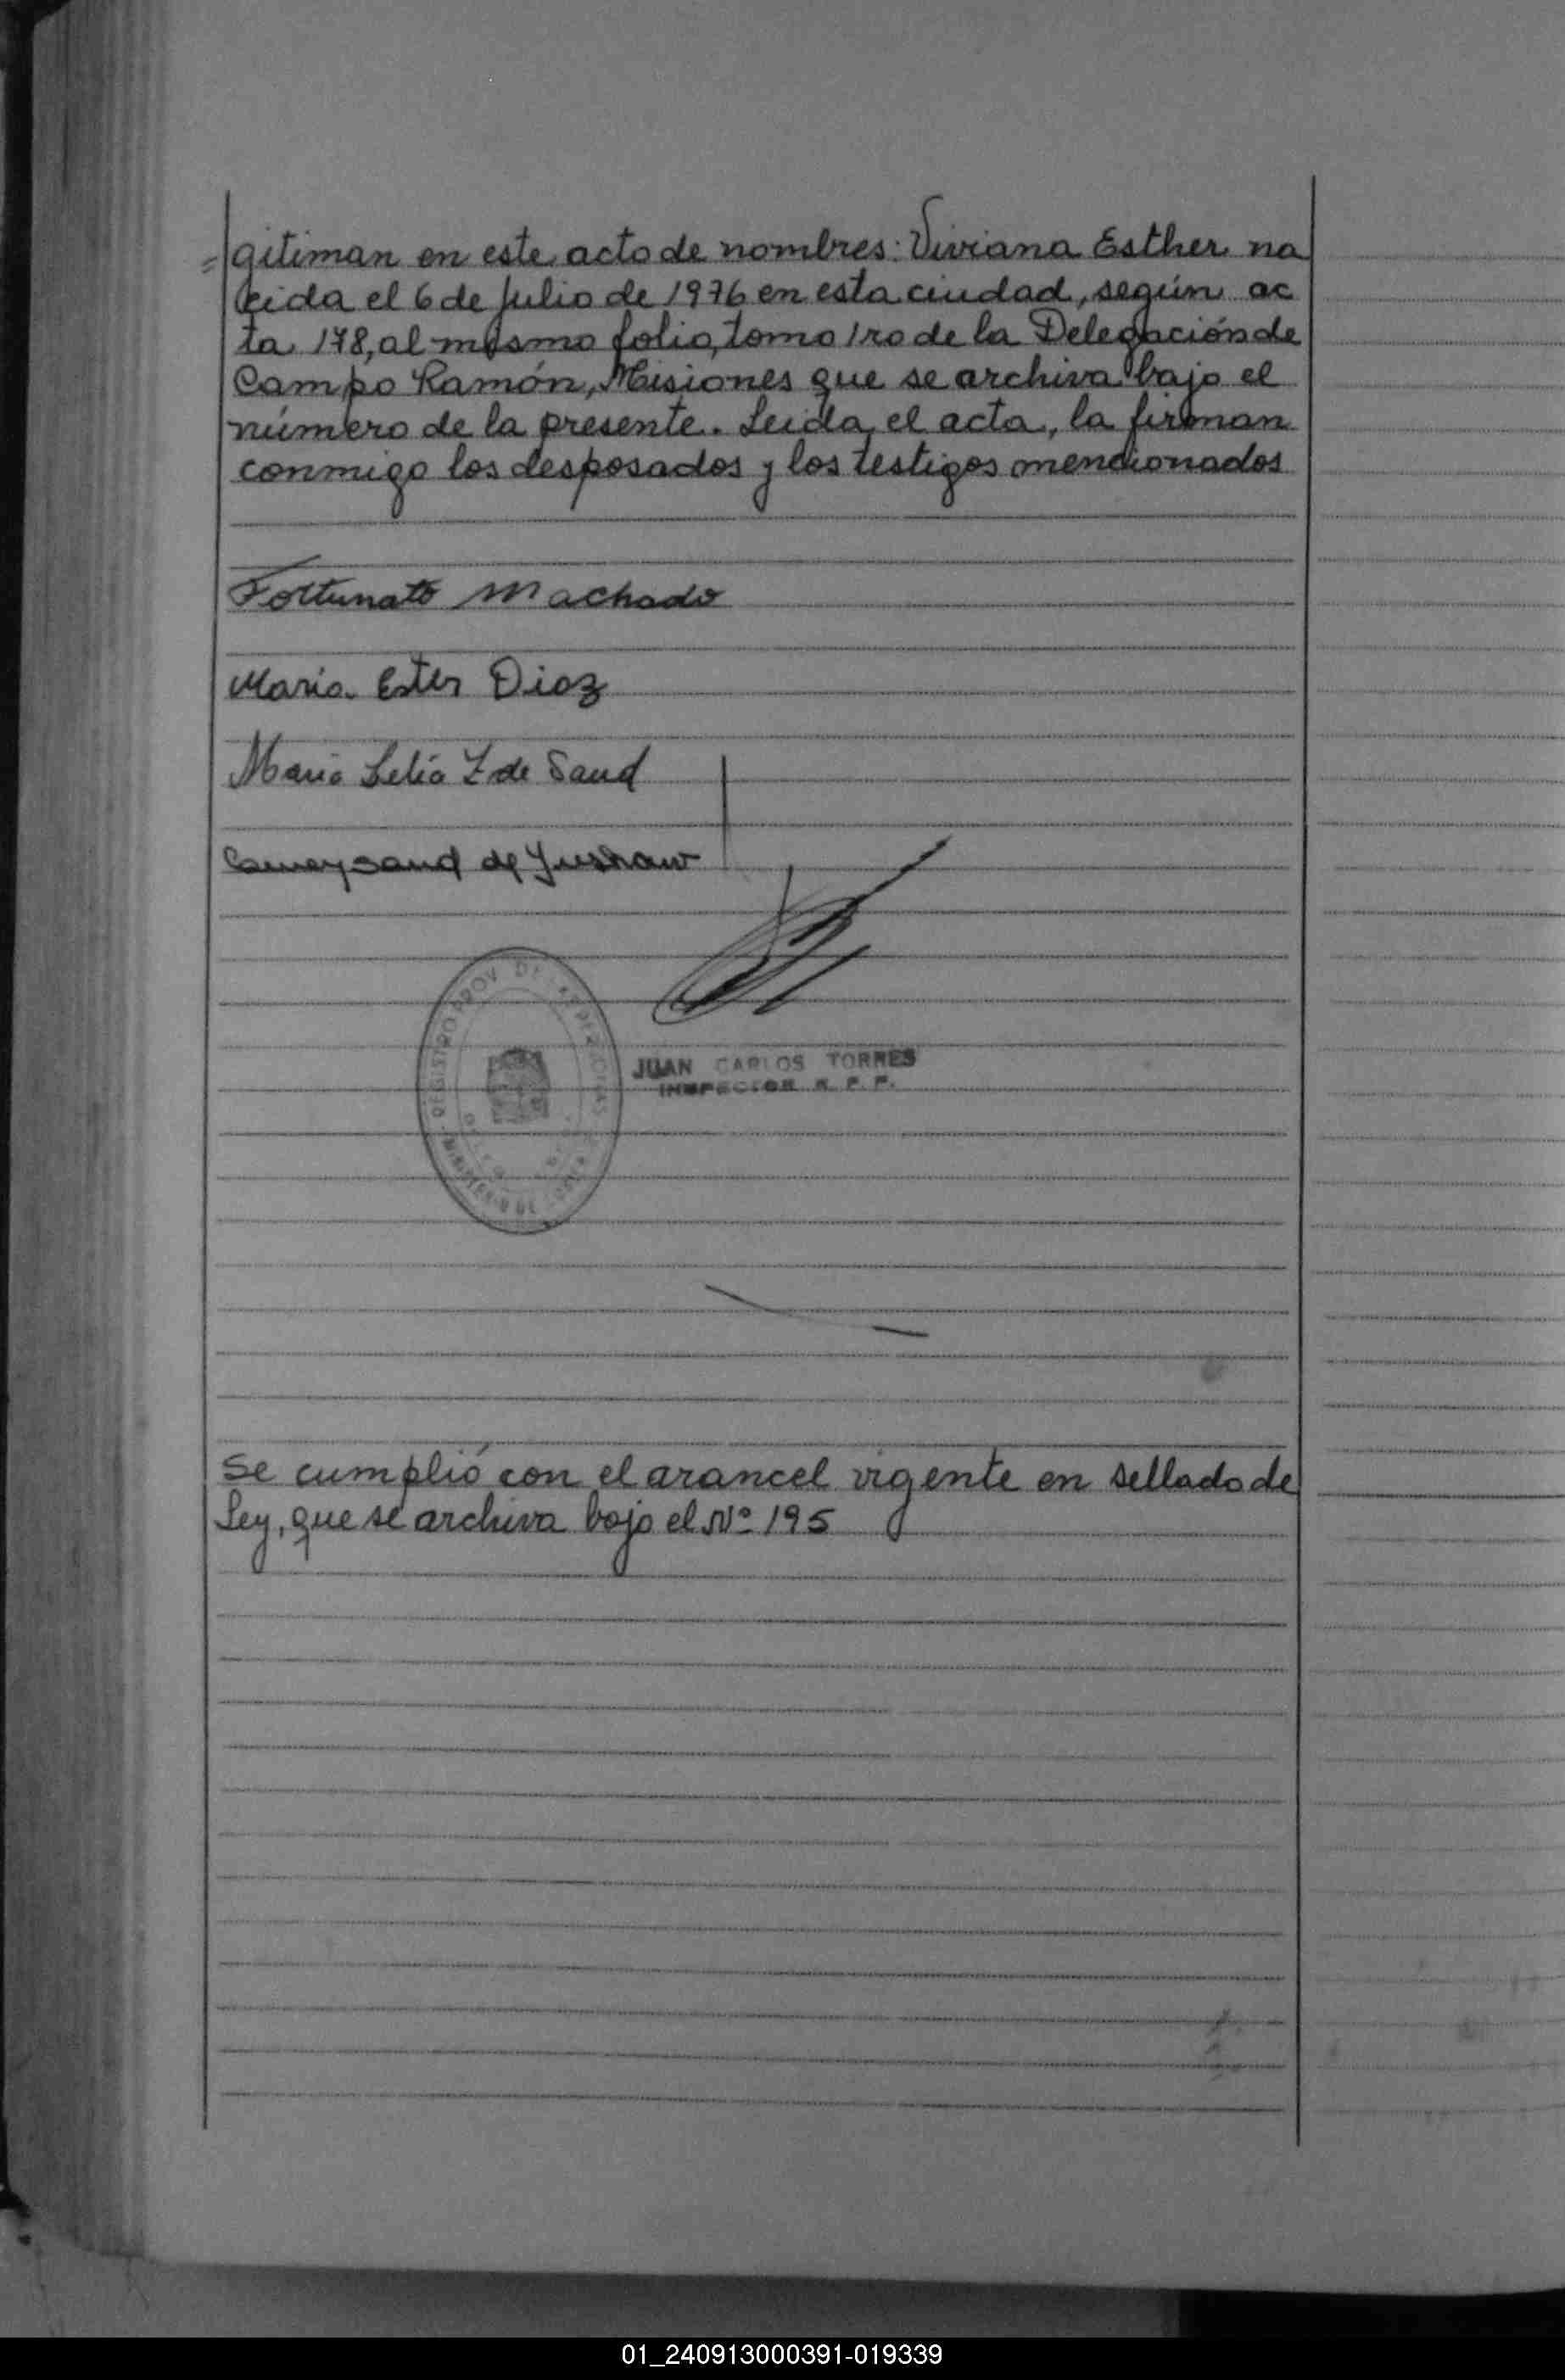 =gitiman en este acto de nombres: Viviana Esther na
cida el 6 de Julio de 1976 en esta ciudad, según ac
ta 178, al mismo folio, tomo 1ro de la Delegación de
Campo Ramón, Misiones que se archiva bajo el
número de la presente. Leida el acta, la firman
conmigo los desposados y los testigos mencionados
Fortunato Machado
Maria Ester Diaz
Maria Lelia Z de Sand
sand de
REGISTRO PROV. DE LAS PERSONAS
MINISTERIO DE
JUAN CARLOS TORRES
INSPECTOR R. P. P.
Se cumplió con el arancel vigente en sellado de
Ley, que se archiva bajo el Nº 195
01_240913000391-019339